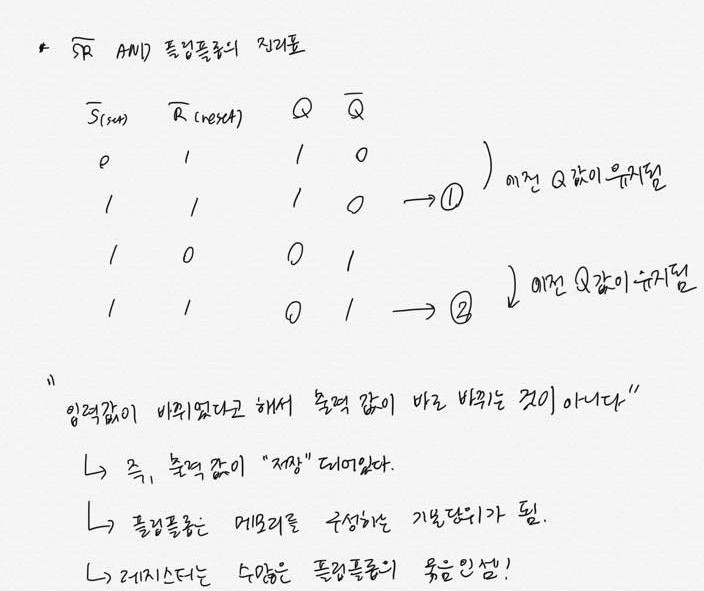 * S̅R̅ AND 플립플롭의 진리표
S̅(set) R̅(reset) Q Q̅
0 1 1 0
1 1 1 0 → ① ) 이전 Q 값이 유지됨
1 0 0 1
1 1 0 1 → ② ) 이전 Q 값이 유지됨
"입력값이 바뀌었다고 해서 출력 값이 바로 바뀌는 것이 아니다"
↳ 즉, 출력 값이 "저장" 되어있다.
↳ 플립플롭은 메모리를 구성하는 기본단위가 됨.
↳ 레지스터는 수많은 플립플롭의 묶음인셈!